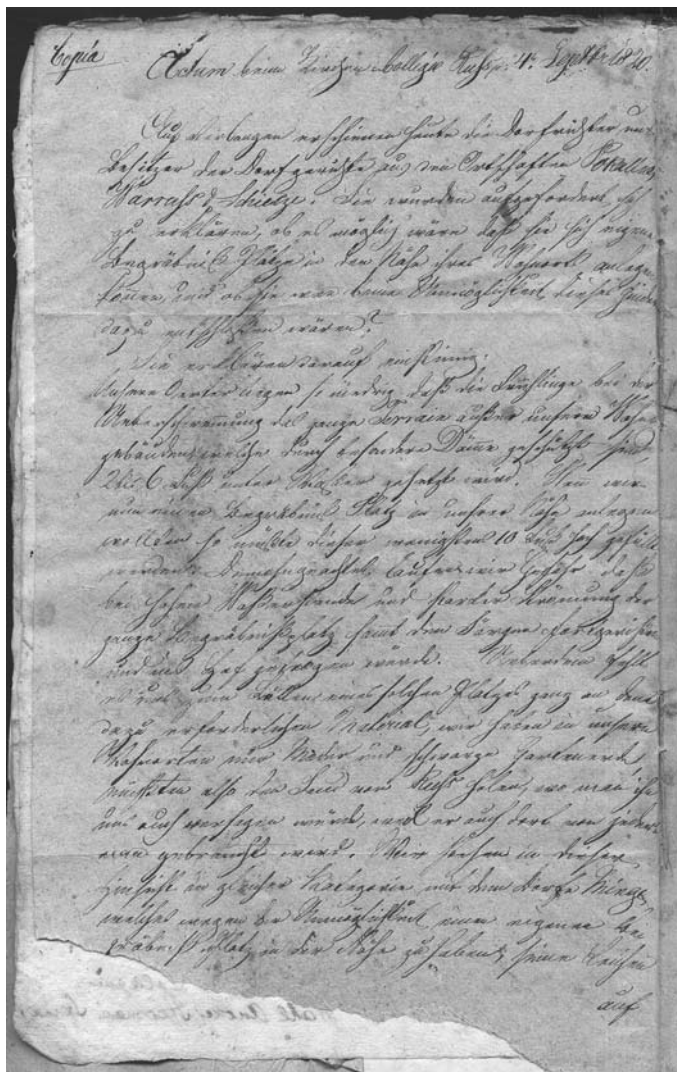 Copia
Actum beim Kirchen Collegio Russ d. 4t Septbr 1820.
Auf Verlangen erschienen heute die Dorfrichter und
Besitzer der Dorfgerichte aus den Ortschaften Pokallna,
Warruss & Schieze. Sie wurden aufgefordert sich
zu erklären, ob es möglich wäre daß sie sich eigene
Begräbniß Plätze in der Nähe ihres Wohnorts anlegen
können, und ob sie wie beim Unmöglichkeit dieses
dazu entschloßen wären?
Sie erklären darauf einstimmig:
Unsere Oerter liegen so niedrig, daß die Frühlinge bei der
Ueberschwemmung das ganze Terrain außer unsern Wohn-
gebäuden welche durch besondere Dämme geschützt sind,
2 bis 6 Fuß unter Wasser gesetzt wird. Wenn wir
nun einen Begräbniß Platz in unsrer Nähe anlegen
wollten so müßte dieser wenigstens 10 Fuß hoch gefüllt
werden. Demohngeachtet laufen wir Gefahr daß
bei hohem Waßerstande und starker Strömung der
ganze Begräbnißplatz samt den Särgen fortgerissen
und ins Haf getragen würde. Ausserdem fehlt
es uns zum Füllen eines solchen Platzes ganz an dem
dazu erforderlichen Material, wir haben in unsern
Wohnorten nur Moder und schwarze Gartenerde
müßten also den Sand von Russ holen, wo man ihn
uns auch versagen würde, weil er auch dort von jeder-
man gebraucht wird. Wir stehen in dieser
Hinsicht in gleicher Kategorie mit dem Dorfe Minge,
welches wegen der Unmöglichkeit einen eigenen Be-
gräbniß Platz in der Nähe zu haben, seine Leichen
auf